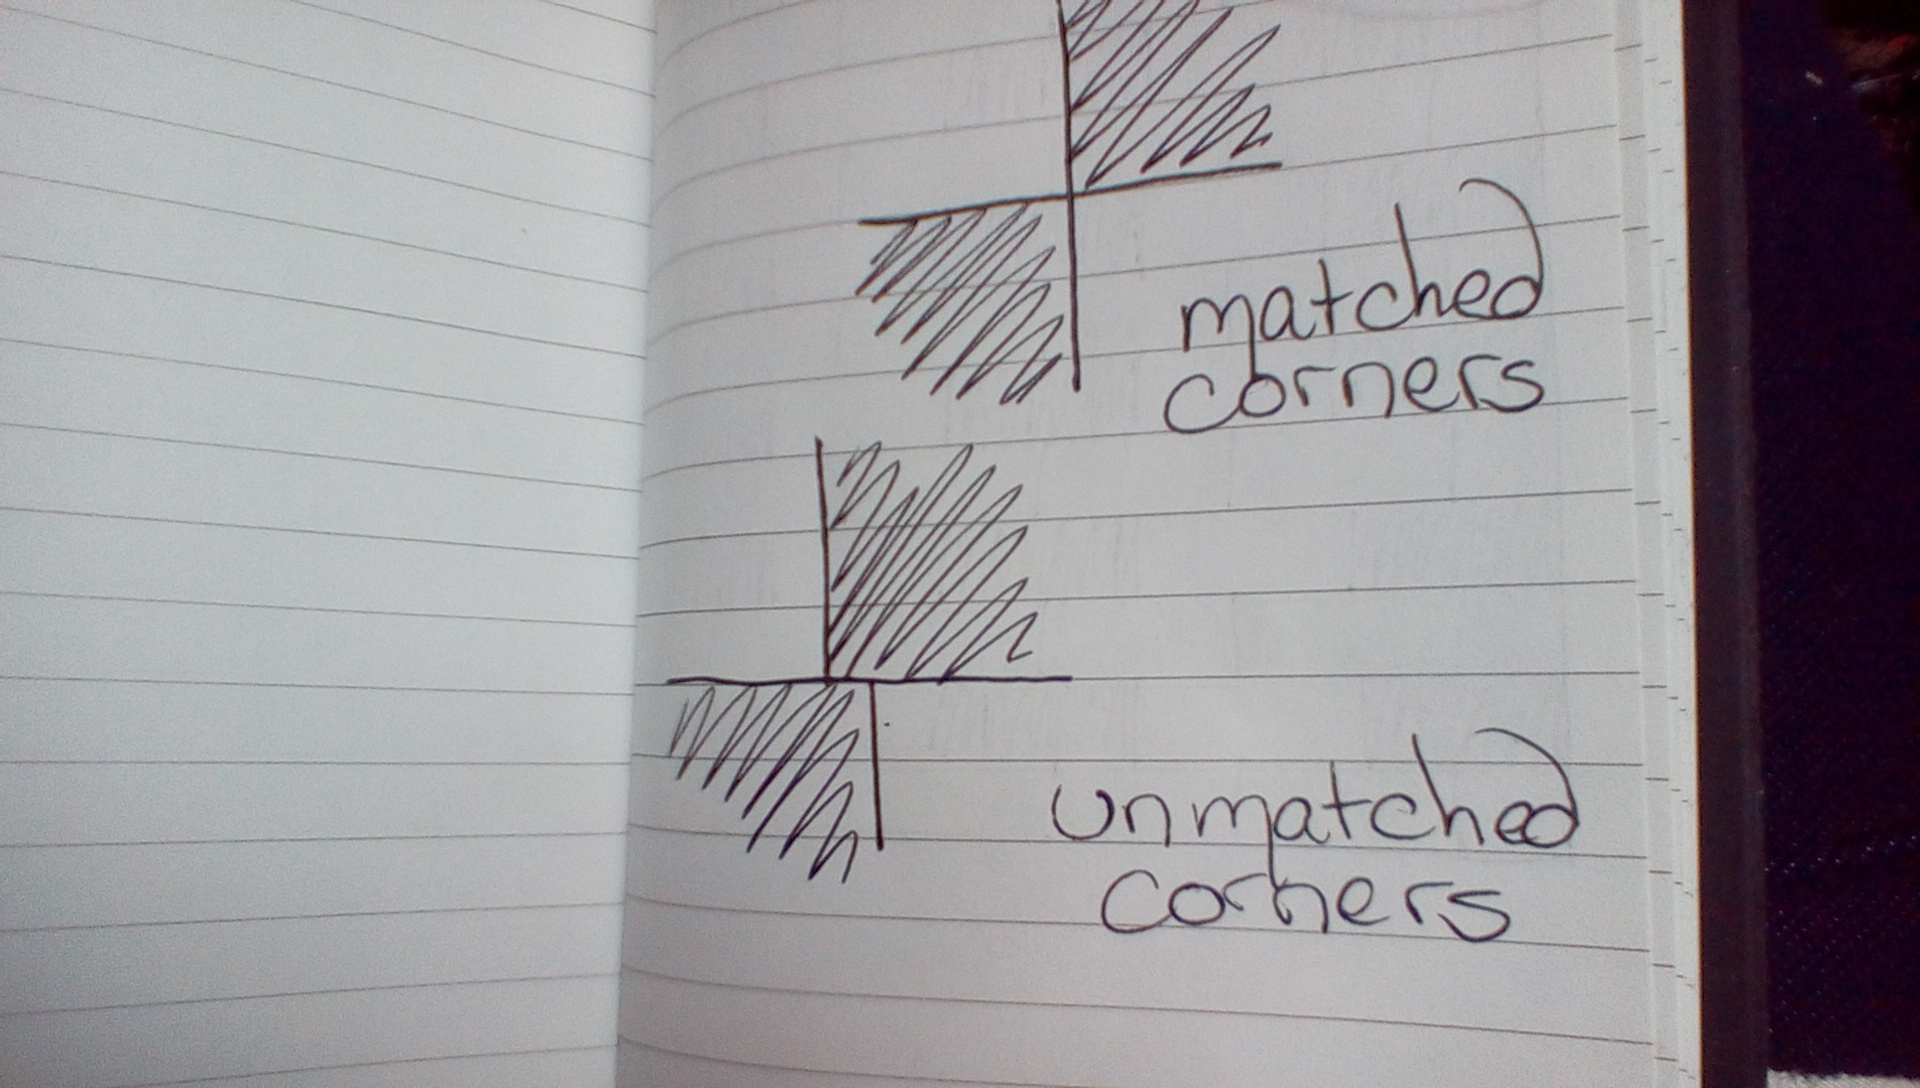 matched
corners
unmatched
corners